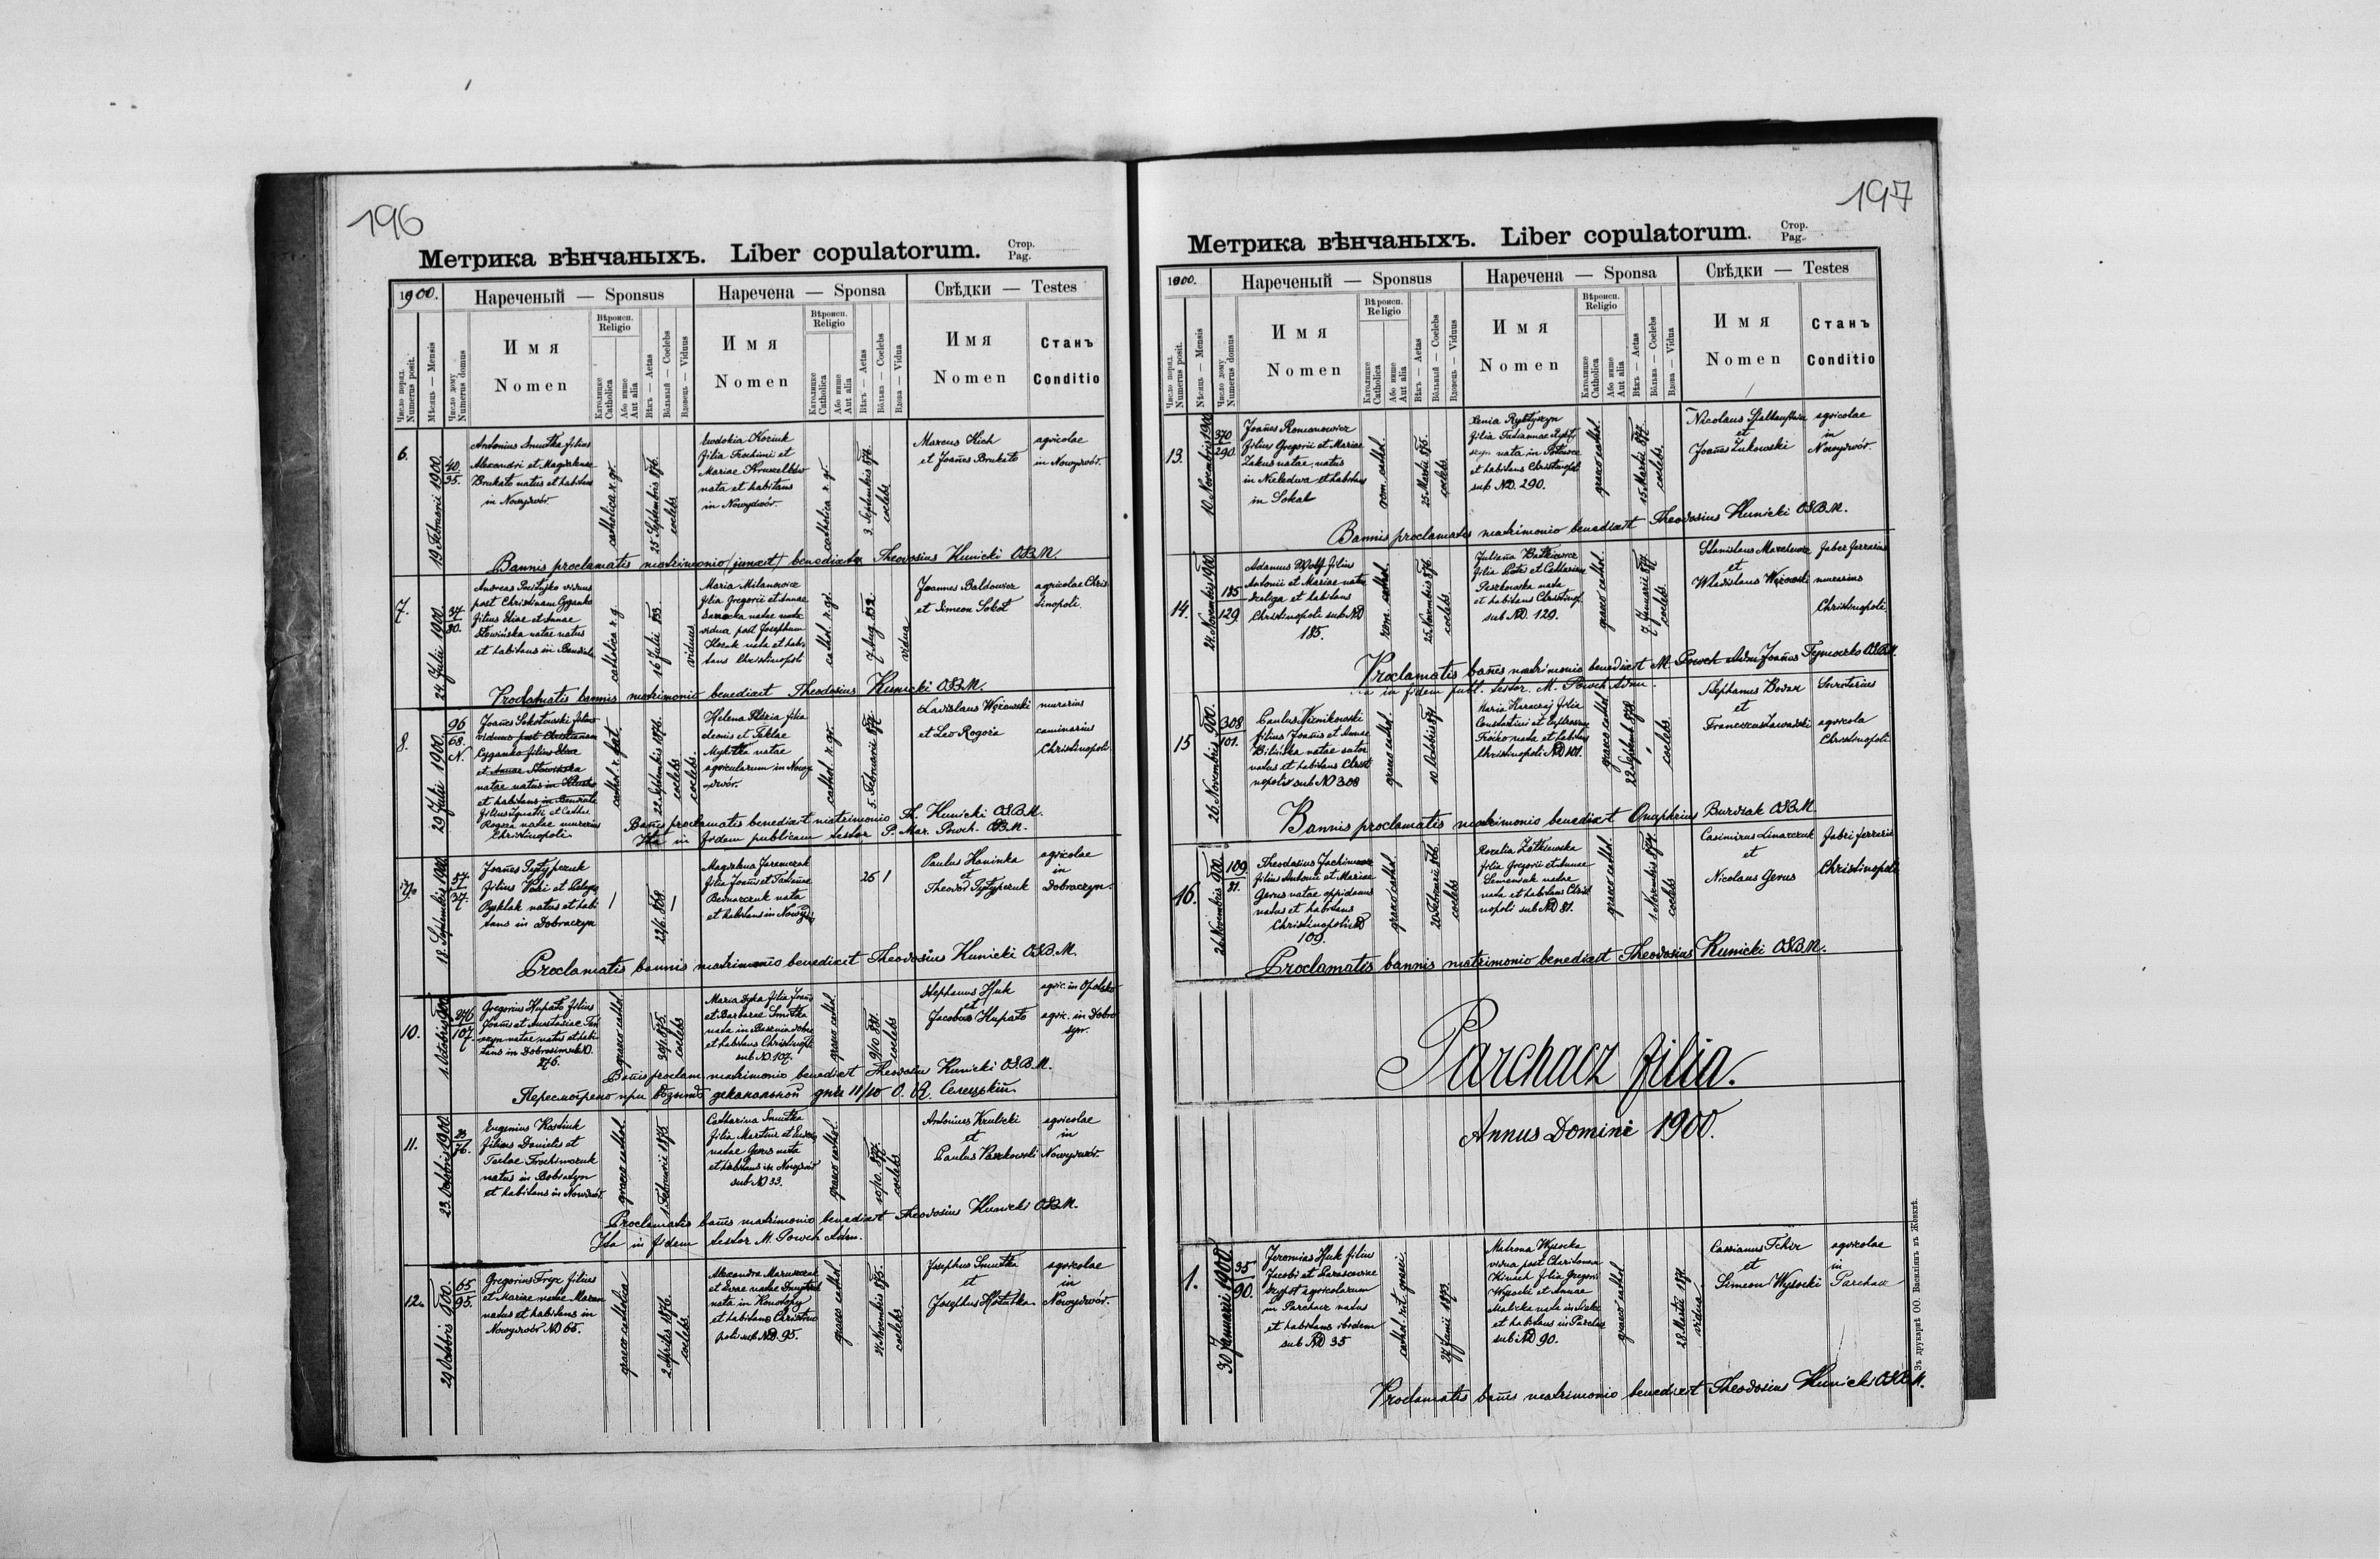 196
Метрика вѣнчаныхъ. Liber copulatorum.
Стор.
Pag.
1900.
Нареченый — Sponsus
Наречена — Sponsa
Свѣдки — Testes
Число поряд.
Numerus posit.
Мѣсяць — Mensis
Число дому
Numerus domus
Имя
Nomen
Вѣроисп.
Religio
Католицке
Catholica
Або инше
Aut alia
Вѣкъ — Aetas
Вôльный — Coelebs
Вдовець — Viduus
Имя
Nomen
Вѣроисп.
Religio
Католицке
Catholica
Або инше
Aut alia
Вѣкъ — Aetas
Вôльна — Coelebs
Вдова — Vidua
Имя
Nomen
Станъ
Conditio
6.
19 Februarii 1900.
40
95.
Antonius Smutka filius
Alexandri et Magdalenae
Brukato natus et habitans
in Nowydwór
catholica r. gr.
25 Septembris 876.
coelebs
Eudokia Koziuk
filia Trochimi et
Mariae
nata et habitans
in Nowydwór.
catholica r. gr.
3. Septembris 876.
coelebs
Marcus Kich
et Joañes Brukato
agricolae
in Nowydwór.
Bannis proclamatis matrimonio (junxit) benedixit Theodosius Kunicki OSBM.
7.
24 Julii 1900.
37
80.
Andreas viduus
post Christinam Cyganko
filius Eliae et Annae
Słowińska natae natus
et habitans in
catholica r. g
16 Julii 853.
viduus
Maria Milanowicz
filia Gregorii et Annae
natae
vidua post Josephum
Kozak nata et habi-
tans Christinopoli
cathol. r. gr.
7 Aug. 852.
vidua
Joannes Baldowicz
et Simeon Sokot
agricolae Chris
tinopoli.
Proclamatis bannis matrimonio benedixit Theodosius Kunicki OSBM.
8.
29 Julii 1900.
96
68.
N.
Joañes Sokołowski filius
viduus post Christianam
Cyganko filius Eliae
et Annae Słowińska
natae natus in
et habitans in
filius Ignatii et Cathar.
Rogoza natae murarius
Christinopoli
22 Septembris 876.
coelebs
coelebs.
Helena filia
Leonis et Teklae
natae
agricolarum in Nowy
-dwór.
cathol r. gr.
5. Februarii 877.
Ladislaus Węzowski
et Leo Rogoza
murarius
caminarius
Christinopoli
Bañis proclamatis benedixit matrimonio Th. Kunicki OSBM.
Ita in fidem publicam testor P. Mar. Powch. OSBM.
9.
18. Septembris 900.
57
37.
Joañes Pytypczuk
filius et Pelagia
natus et habi
tans in Dobraczyn
22/6. 868.
Magdalena Jaremczak
filia Joañis et Tatiañae
Bednarczuk nata
et habitans in Nowydw
26
Paulus Haninka
et
Theodor Pytypczuk
agricolae
in
Dobraczyn.
Proclamatis bannis matrimonio benedixit Theodosius Kunicki OSBM.
10.
1. Octobris 900.
276
107.
Gregorius Kupato filius
Joañis et Anastasiae
natae natus et habi
tans in sub ND.
276.
graeco cathol.
875.
coelebs
Maria filia Joañis
et Barbarae Smutka
nata in
et habitans Christinopoli
sub ND. 107.
graeco cathol
9/10 881.
coelebs
Stephanus Huk
et
Jacobus Kupato
agric. in Opolsko
agric. in Dobro
syn.
Bañis proclam. matrimonio benedixit Theodosius Kunicki OSBM.
Пересмотрено при деканальной дня 11/10 О. Селецькій.
11.
23. Octobris 1900
33
76.
Eugenius Kostiuk
filius Danielis et
Teclae Trochimczuk
natus in Bobiatyn
et habitans in Nowydwór
graeco cathol.
1 Februarii 1875
Catharina Smutka
filia Martini et
natae Gerus nata
et habitans in Nowydwór
sub ND 33.
graeco cathol.
10/10. 877.
coelebs
Antonius Krulicki
et
Paulus Paszkowski
agricolae
in
Nowydwór.
Proclamatis bañis matrimonio benedixit Theodosius Kunicki OSBM.
Ita in fidem testor M. Powch Adm.
12.
29 Octobris 900.
65
95.
Gregorius Fryz filius
et Mariae natae
natus et habitans in
Nowydwór ND 65.
graeco catholica
2 Aprilis 1876.
coelebs
Alexandra
et Evae natae
nata in Konotopy
et habitans Christino
poli sub ND. 95.
graeco cathol
Novembris 875.
coelebs
Josephus Smutka
et
Josephus
agricolae
in
Nowydwór.
197
Метрика вѣнчаныхъ. Liber copulatorum.
Стор.
Pag.
1900.
Нареченый — Sponsus
Наречена — Sponsa
Свѣдки — Testes
Число поряд.
Numerus posit.
Мѣсяць — Mensis
Число дому
Numerus domus
Имя
Nomen
Вѣроисп.
Religio
Католицке
Catholica
Або инше
Aut alia
Вѣкъ — Aetas
Вôльный — Coelebs
Вдовець — Viduus
Имя
Nomen
Вѣроисп.
Religio
Католицке
Catholica
Або инше
Aut alia
Вѣкъ — Aetas
Вôльна — Coelebs
Вдова — Vidua
Имя
Nomen
Станъ
Conditio
13.
10. Novembris 1900
370
290.
Joañes Romanowicz
filius Gregorii et Mariae
Zakus natae, natus
in Nieledwa et habitans
in Sokal
rom. cathol.
25 Martii 875.
coelebs
Xenia
filia Tatiannae
nata in
et habitans Christinopol
sub ND. 290.
graeco cathol.
15 Martii 877.
coelebs.
Nicolaus
et
Joañes Żukowski
agricolae
in
Nowydwór.
Bannis proclamatis matrimonio benedixit Theodosius Kunicki OSBM.
14.
24. Novembris 1900
185
129
Adamus Wolf filius
Antonii et Mariae natae
Szeliga et habitans
Christinopoli sub ND
185.
rom. cathol.
25. Novembris 876.
coelebs
Juliana Butkiewicz
filia Petri et Catharinae
Peszkowska nata
et habitans Christinop.
sub ND. 129.
graeco cathol.
7. Januarii 877.
coelebs
Stanislaus
et
Wladislaus Węzowski
faber ferrarius
murarius
Christinopoli
Proclamatis bañis matrimonio benedixit M. Powch Adm Joañes Tymoczko OSBM.
Ita in fidem publ. testor. M. Powch Adm.
15
26. Novembris 900.
308
101.
Paulus Niznikowski
filius Joañis et Annae
Bilińska natae sator
natus et habitans Christi
nopoli sub ND 308
graeco cathol.
10 Octobris 871
Maria Karaczaj filia
Constantini et
nata et habitans
Christinopoli ND 101.
graeco cathol.
22 Septemb. 878
coelebs
Stephanus Bodak
et
Franciscus Zawadski
Secretarius
agricola
Christinopoli
Bannis proclamatis matrimonio benedixit Onuphrius Burdiak OSBM.
16.
26 Novembris 900.
109
81.
Theodosius
filius Antonii et Mariae
Gerus natae oppidanus
natus et habitans
Christinopoli ND
109.
graeco cathol.
20 Februarii 866
coelebs
Rozalia Żółkiewska
filia Gregorii et Annae
natae
nata et habitans Christi
nopoli sub ND 81.
graeco cathol.
1. Novembris 877.
coelebs
Casimirus Linarczuk
et
Nicolaus Gerus
fabri ferrarii
Christinopoli
Proclamatis bannis matrimonio benedixit Theodosius Kunicki OSBM.
Parchacz filia.
Annus Domini 1900.
1.
30 Januarii 1900.
35
90.
Jeremias Huk filius
Jacobi et Parascevae
agricolarum
in Parchacz natus
et habitans ibidem
sub ND 35
cathol. rit. graeci
27 Junii 1873.
Matrona Wysocka
vidua post Charitonem
filia Gregorii
Wysocki et Annae
nata in
et habitans in Parchacz
sub ND 90.
graeco cathol
28 Martii 187
vidua
Cassianus Fehir
et
Simeon Wysocki
agricolae
in
Parchacz
Proclamatis bañis matrimonio benedixit Theodosius Kunicki OSBM.
Зъ друкарнѣ ОО. Василіянъ въ Жовквѣ.